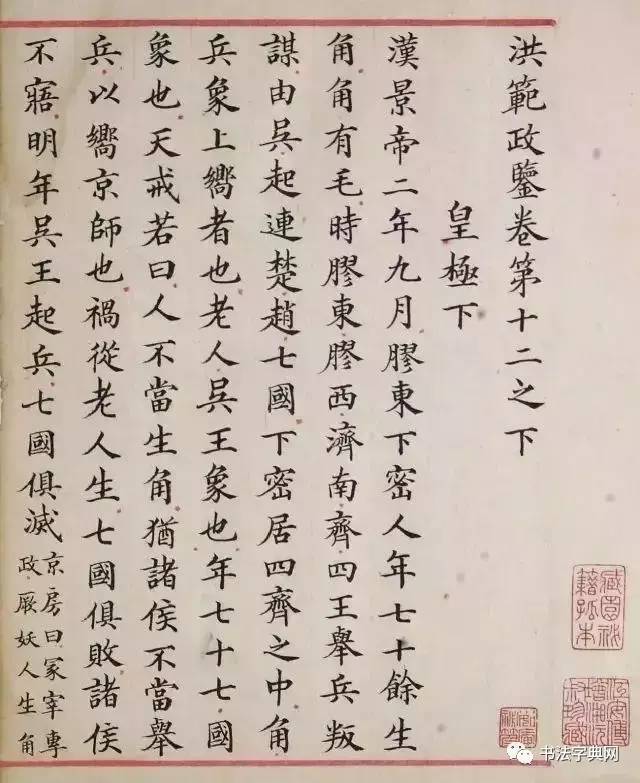 洪範政鑒卷第十二之下
皇極下
漢景帝二年九月膠東下密人年七十餘生
角角有毛時膠東膠西濟南齊四王舉兵叛
謀由吳起連楚趙七國下密居四齊之中角
兵象上嚮者也老人吳王象也年七十七國
象也天戒若曰人不當生角猶諸侯不當舉
兵以嚮京師也禍從老人生七國俱敗諸侯
不寤明年吳王起兵七國俱滅京房曰冢宰專
政厥妖人生角
藏園祕
籍孤本
书法字典网